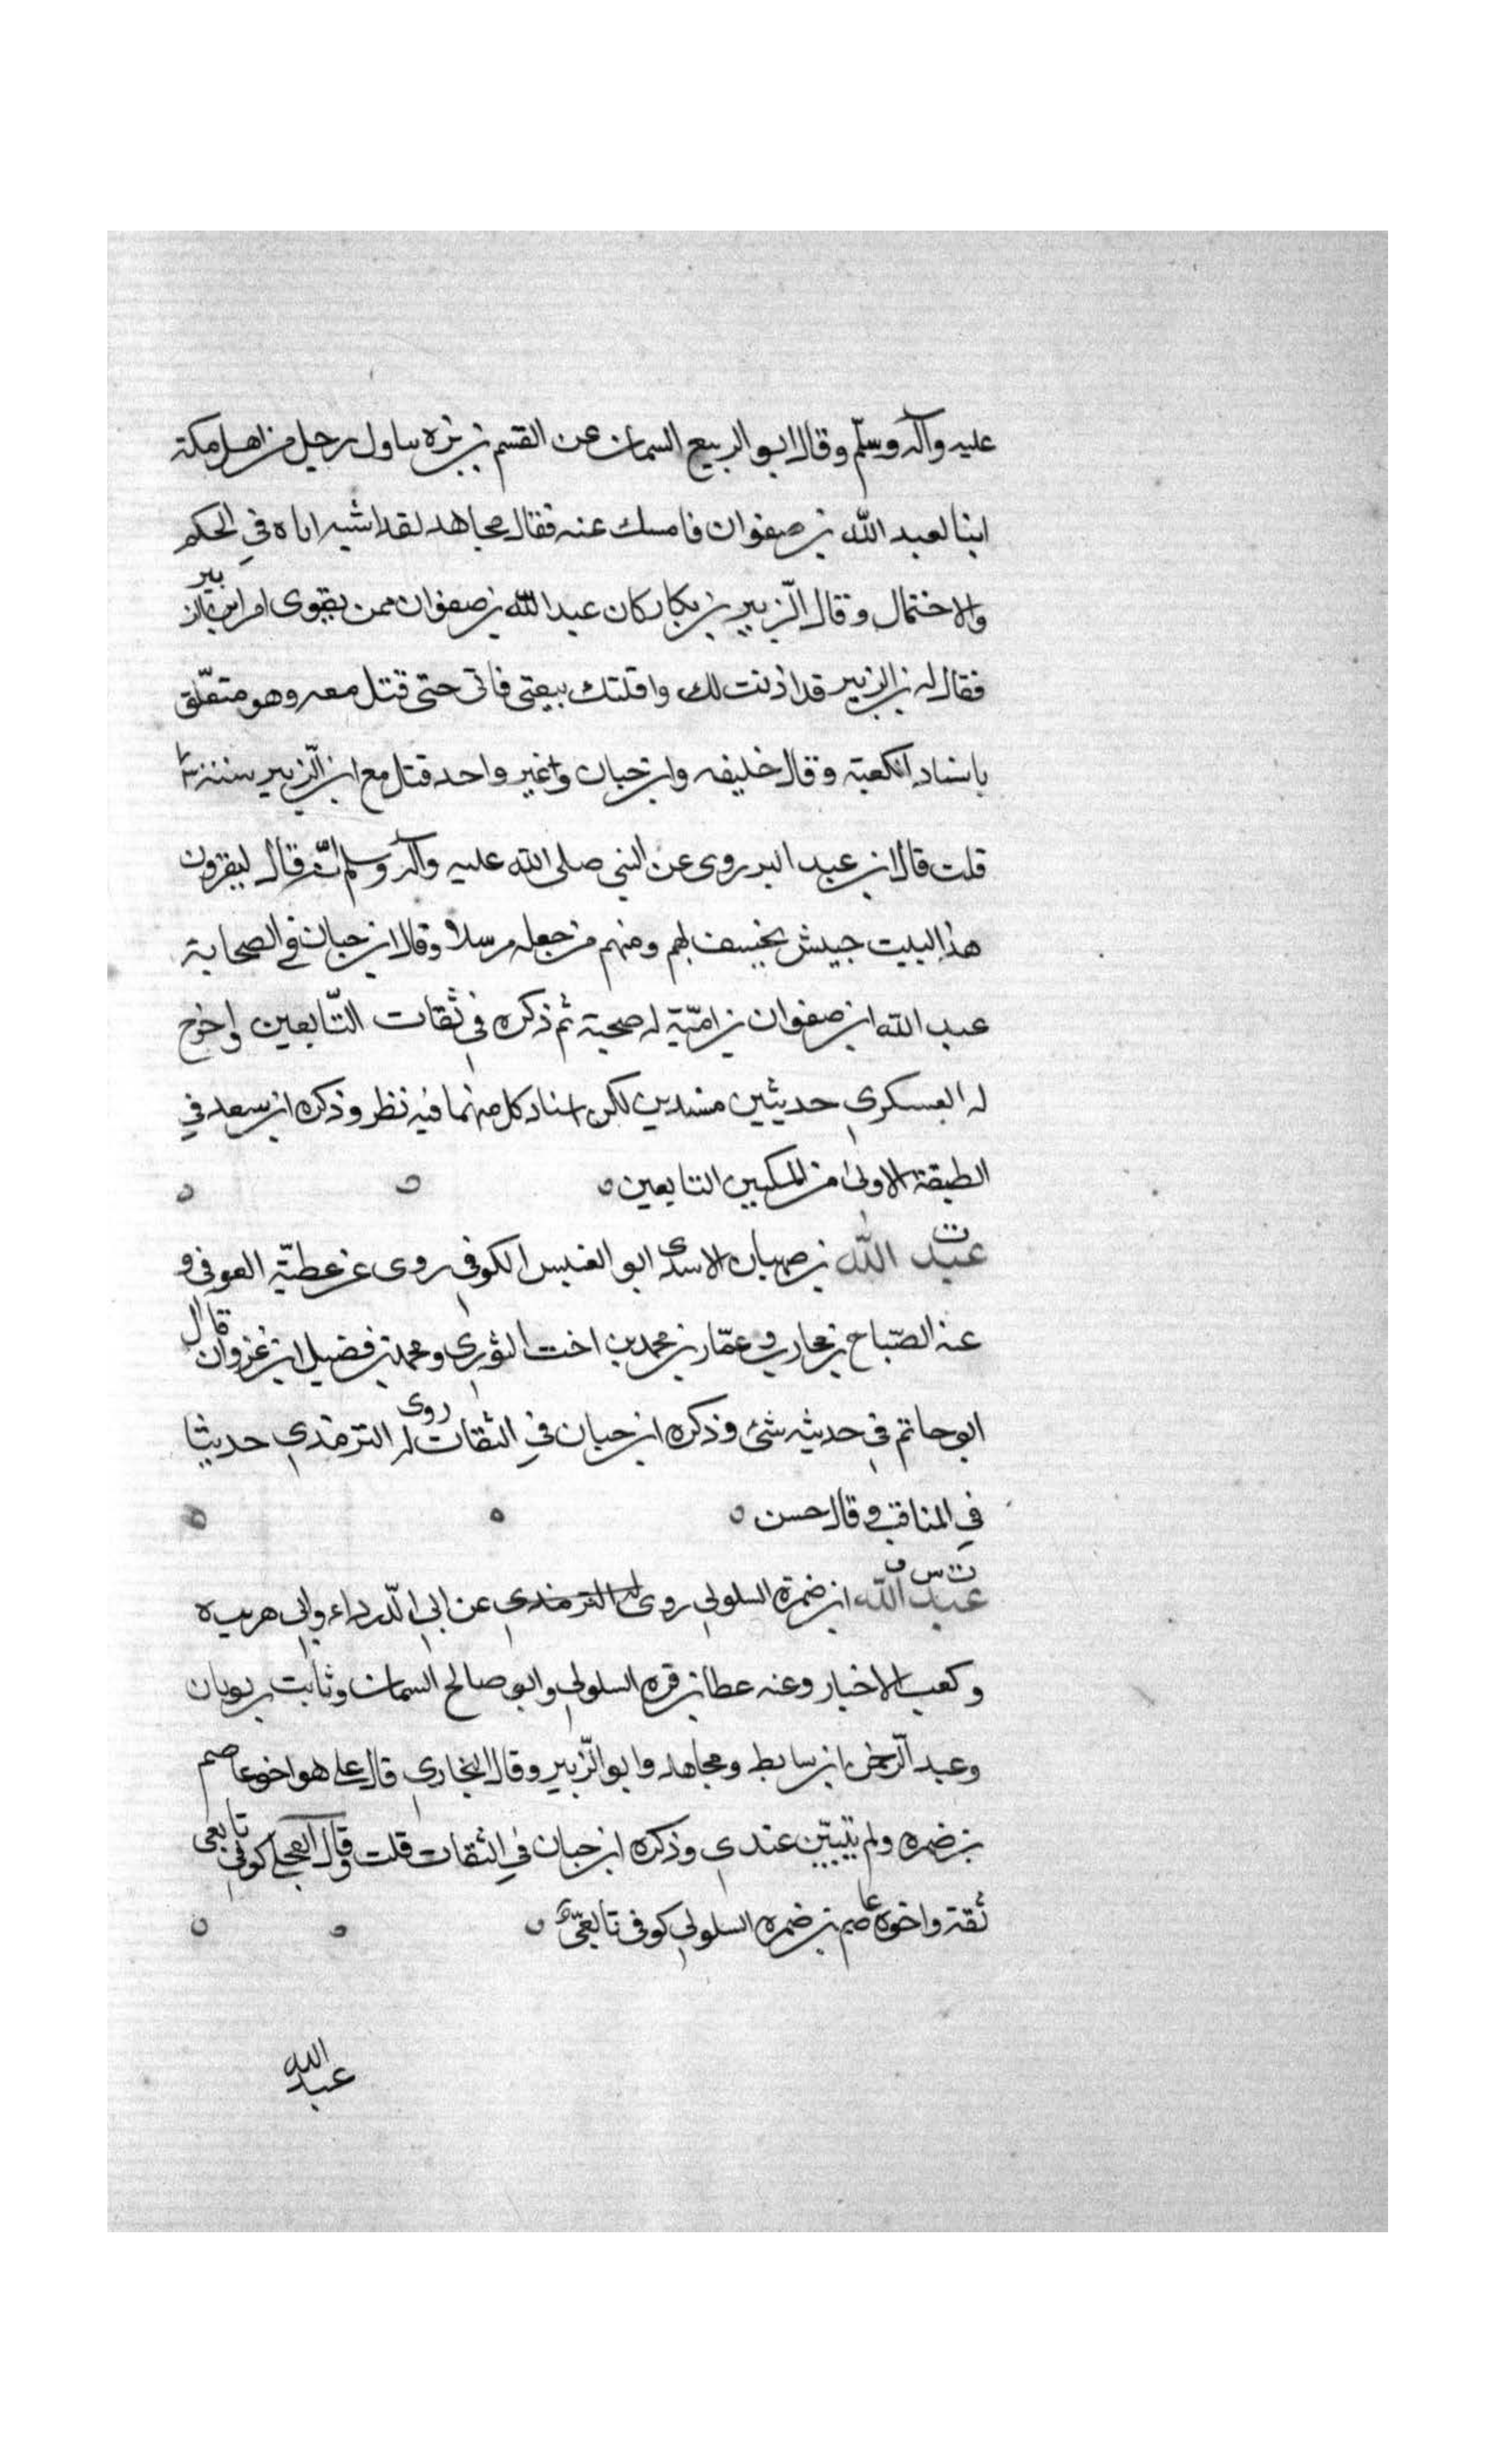 عليه وآله وسلّم وقال ابو الربيع السمان عن القسم بن بزه ساول رجل من اهل مكة
ابنا لعبد الله بن صفوان فامسك عنه فقال مجاهد لقد اشبه اباه في الحكم
والاحتمال وقال الزّبير بن بكار كان عبد الله بن صفوان ممن يقوى امر ابن الزبير
فقال له بن الزبير قد اذنت لك واقلتك بيعتي فاتى حتى قتل معه وهو متعلّق
باستار الكعبة وقال خليفه وابن حبان وغير واحد قتل مع ابن الزّبير سنة
قلت قال ابن عبد البر روى عن النبي صلى الله عليه وآله وسلم انّه قال ليغزون
هذا البيت جيش يخسف بهم ومنهم من جعله مرسلا وقال ابن حبان في الصحابة
عبد الله ابن صفوان بن اميّة له صحبة ثم ذكره في ثقات التّابعين واخرج
له العسكري حديثين مسندين لكن اسناد كل منهما فيه نظر وذكره ابن سعد في
الطبقة الاولى من المكيين التابعين
ت
عبد الله بن صهبان الاسدى ابو العنبس الكوفي روى عن عطيّة العوفي و
عنه الصّباح بن محارب وعمّار بن محمد بن اخت الثوري ومحمد بن فضيل ابن غزوان قال
ابو حاتم في حديثه شئ وذكره ابن حبان في الثقات روى له الترمذي حديثا
في المناقب وقال حسن
ت س ق
عبد الله ابن ضمرة السلولي روى له الترمذي عن ابي الدّرداء وابي هريره
وكعب الاخبار وعنه عطا بن قره السلولي وابو صالح السمان وثابت بن ثوبان
وعبد الرّحمن ابن سابط ومجاهد وابو الزّبير وقال البخاري قال علي هو اخو عاصم
بن ضمره ولم يتبيّن عندي وذكره ابن حبان في الثقات قلت وقال العجلي كوفي تابعي
ثقة واخوه عاصم بن ضمره السلولي كوفى تابعيّ
عبد الله